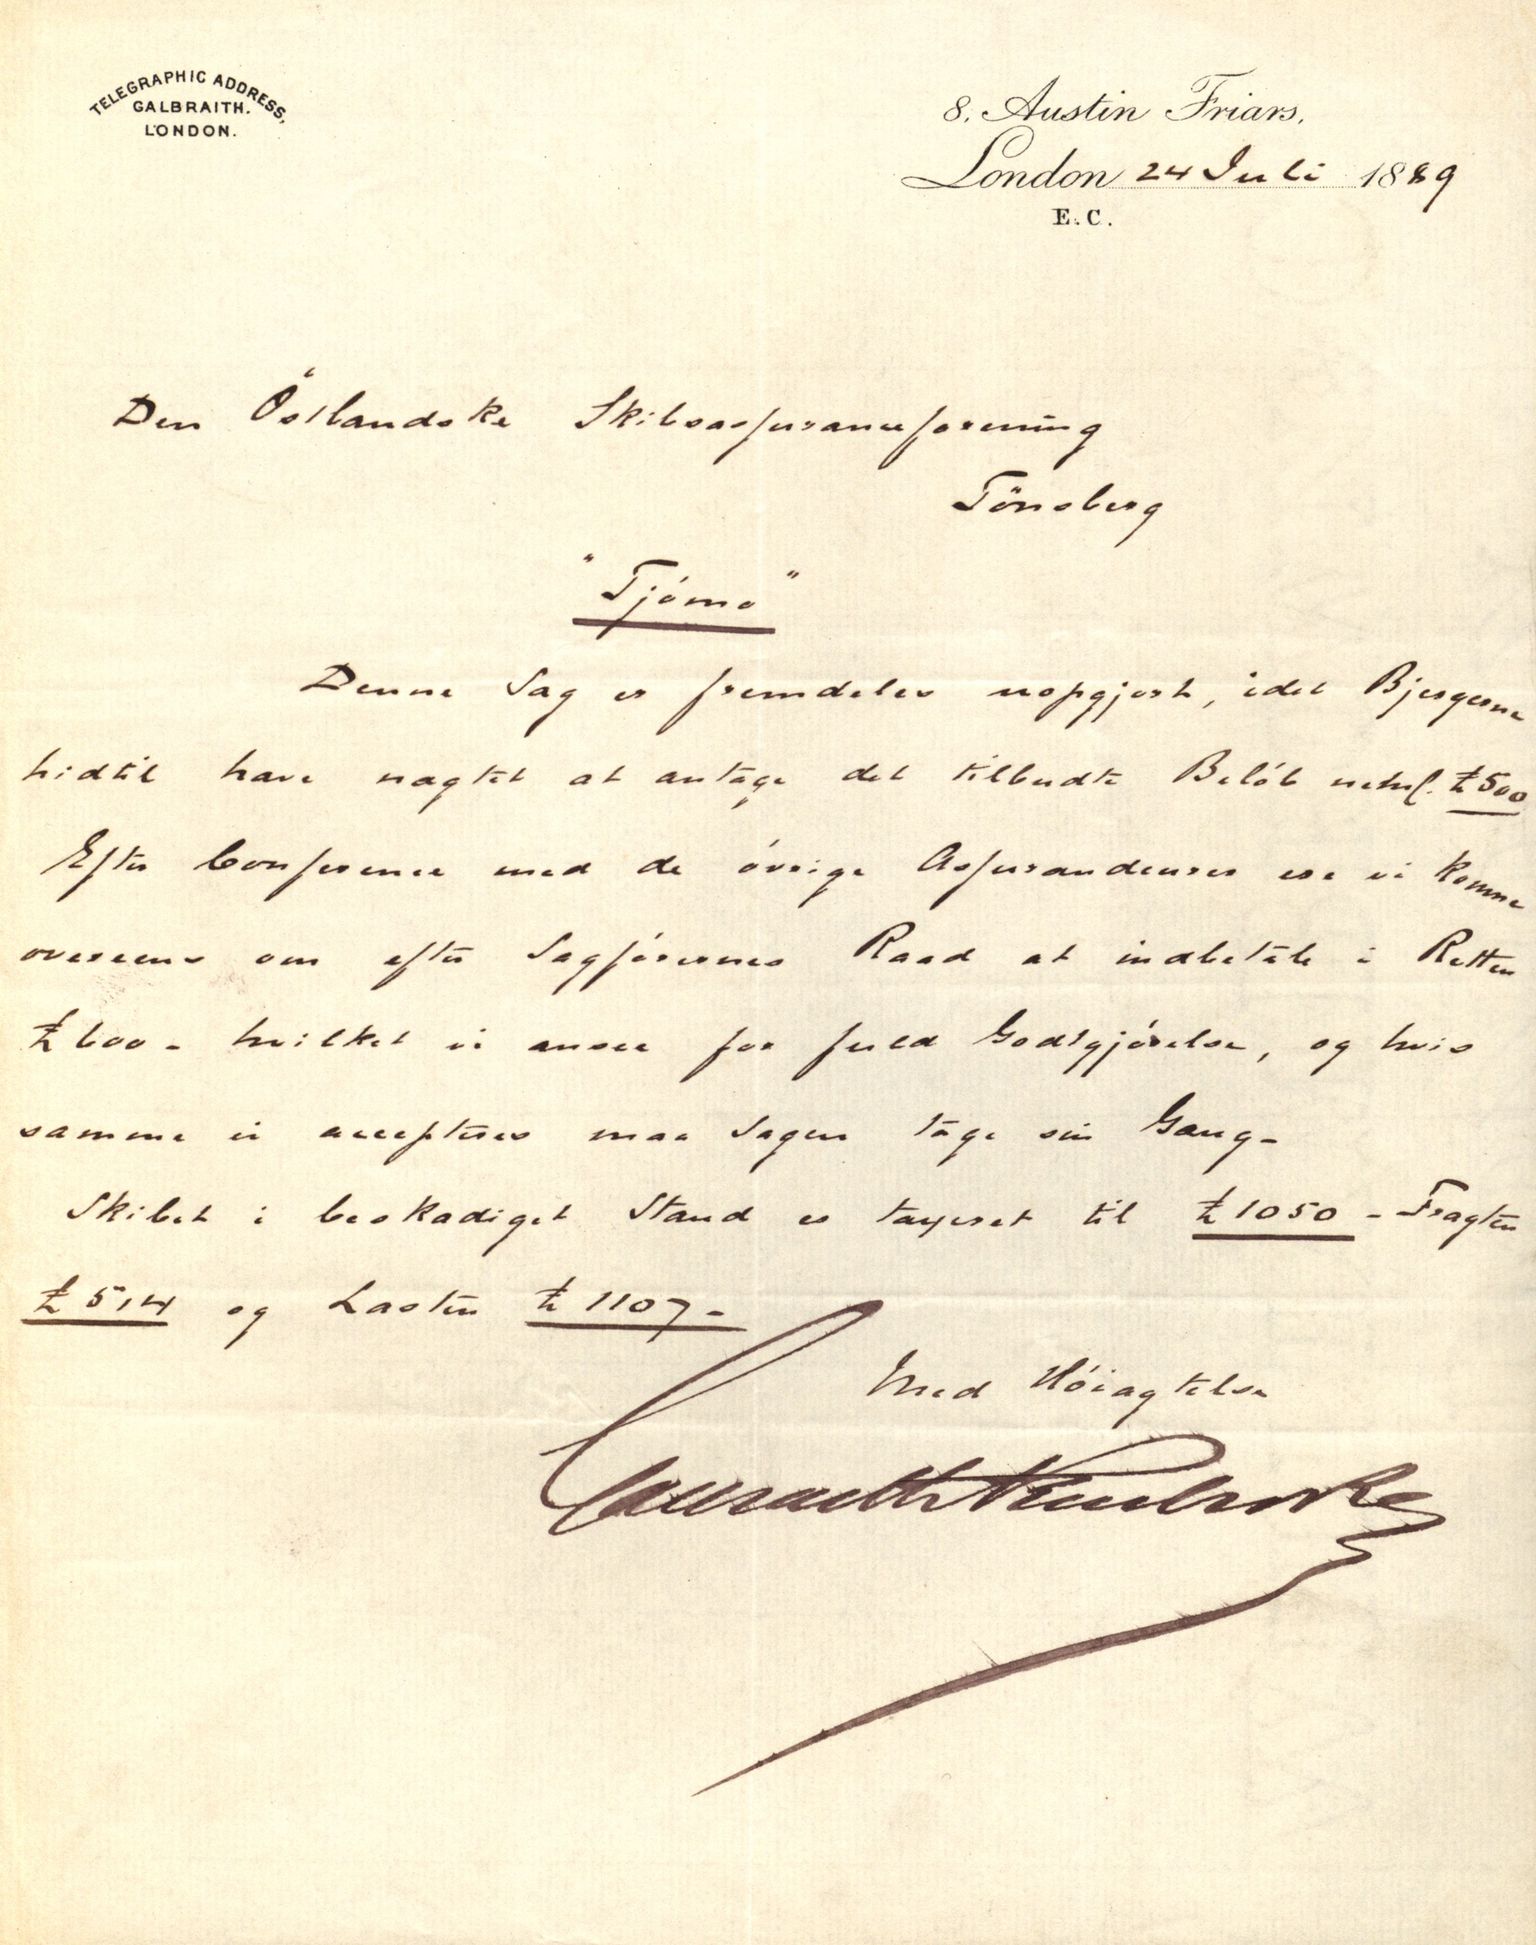 TELEGRAPHIC ADDRESS,
GALBRAITH.
LONDON.
8, Austin Friars,
London 24 Juli 1889
E.C.
Den Östlandske Skibsassuranceforening
Tönsberg
"Tjömö"
Denne Sag er fremdeles uopgjort, idet Bjergerne
hidtil have nægtet at antage det tilbudte Belöb neml. £500
Efter Conference med de övrige Assurandeurer ere vi komne
overeens om efter Sagförernes Raad at indbetale i Retten
£600 - hvilket vi ansee for fuld Godtgjörelse, og hvis
samme ei accepteres maa Sagen tage sin Gang -
Skibet i beskadiget Stand er taxeret til £1050 - Fragten
£514 og Lasten £1107 -
Med Höiagtelse
Galbraith Pembroke